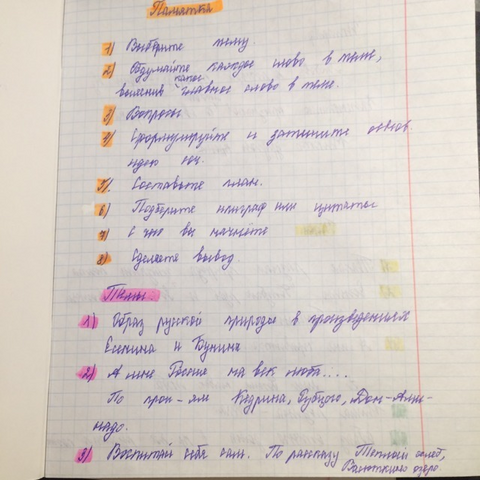 Памятка
1) Выберите тему.
2) Обдумайте каждое слово в теме,
выяснив какое главное слово в теме.
3) Вопросы
4) Сформулируйте и запишите основ.
идею соч.
5) Составьте план.
6) Подберите эпиграф или цитаты
7) С чего вы начнёте
8) Сделайте вывод.
Темы:
1) Образ русской природы в произведениях
Есенина и Бунина
2) А мне Россия на век люба...
По произ-ям Кедрина, Рубцова, Дон-Ами-
надо.
3) Воспитай себя сам. По рассказу Тёплый хлеб,
Васюткино озеро.